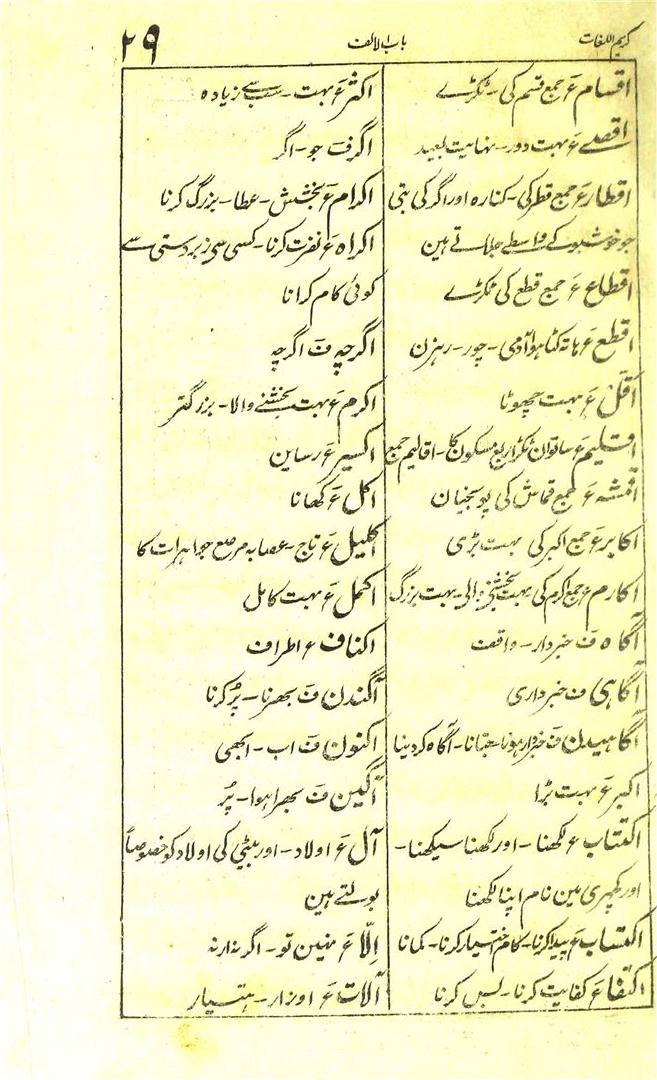 کریم اللغات
باب الالف
۲۹
اقسام ع جمع قسم کی - ٹکڑے
اقصے ع بہت دور - نہایت بعید
اقطار ع جمع قطر کی - کنارہ اور اگر کی بتی
جو خوشبو کے واسطے جلاتے ہین
اقطاع ع جمع قطع کی ٹکڑے
اقطع ع ہاتہ کٹا ہوا آدمی - چور - رہزن
اقل ع بہت چھوٹا
اقلیم ع ساتوان ٹکڑا ربع مسکون کا - اقالیم جمع
اقمشہ ع جمع قماش کی پونجیان
اکابر ع جمع اکبر کی بہت بڑی
اکارم ع جمع اکرم کی بہت بخشنے والی - بہت بزرگ
آگاہ ف خبردار - واقف
آگاہی ف خبرداری
آگاہیدن ف خبردار ہونا - جتانا - آگاہ کردینا
اکبر ع بہت بڑا
اکتتاب ع لکھنا - اور لکھنا سیکھنا -
اور کچہری مین نام اپنا لکھنا
اکتساب ع پیدا کرنا - کام اختیار کرنا - کمانا
اکتفا ع کفایت کرنا - بس کرنا
اکثر ع بہت - سب سے زیادہ
اگر ف جو - اگر
اکرام ع بخشش - عطا - بزرگ کرنا
اکراہ ع نفرت کرنا - کسی سی زبردستی سے
کوئی کام کرانا
اگرچہ ف اگرچہ
اکرم ع بہت بخشنے والا - بزرگتر
اکسیر ع رساین
اکل ع کھانا
اکلیل ع تاج - عصابہ مرصع جواہرات کا
اکمل ع بہت کامل
اکناف ع اطراف
آگندن ف بھرنا - پُر کرنا
اکنون ف اب - ابھی
آگین ف بھرا ہوا - پُر
آل ع اولاد - اور بیٹی کی اولاد کو خصوصاً
بولتے ہین
اِلّا ع نہین تو - اگر نہ ارنہ
آلات ع اوزار - ہتیار